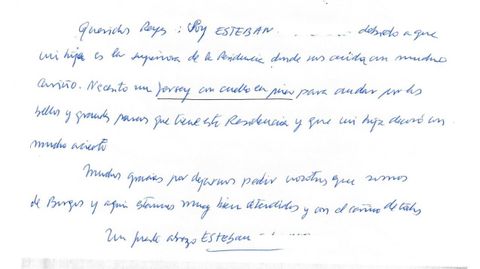 Queridos Reyes: Soy ESTEBAN ............ debido a que
mi hija es la supervisora de la Residencia donde nos cuidan con mucho
cariño. Necesito un Jersey con cuello en pico para andar por los
bellos y grandes paseos que tiene esta Residencia y que mi hija decoró con
mucho acierto
Muchas gracias por dejarnos pedir nosotros que somos
de Burgos y aquí estamos muy bien atendidos y con el cariño de todos
Un fuerte abrazo ESTEBAN ............